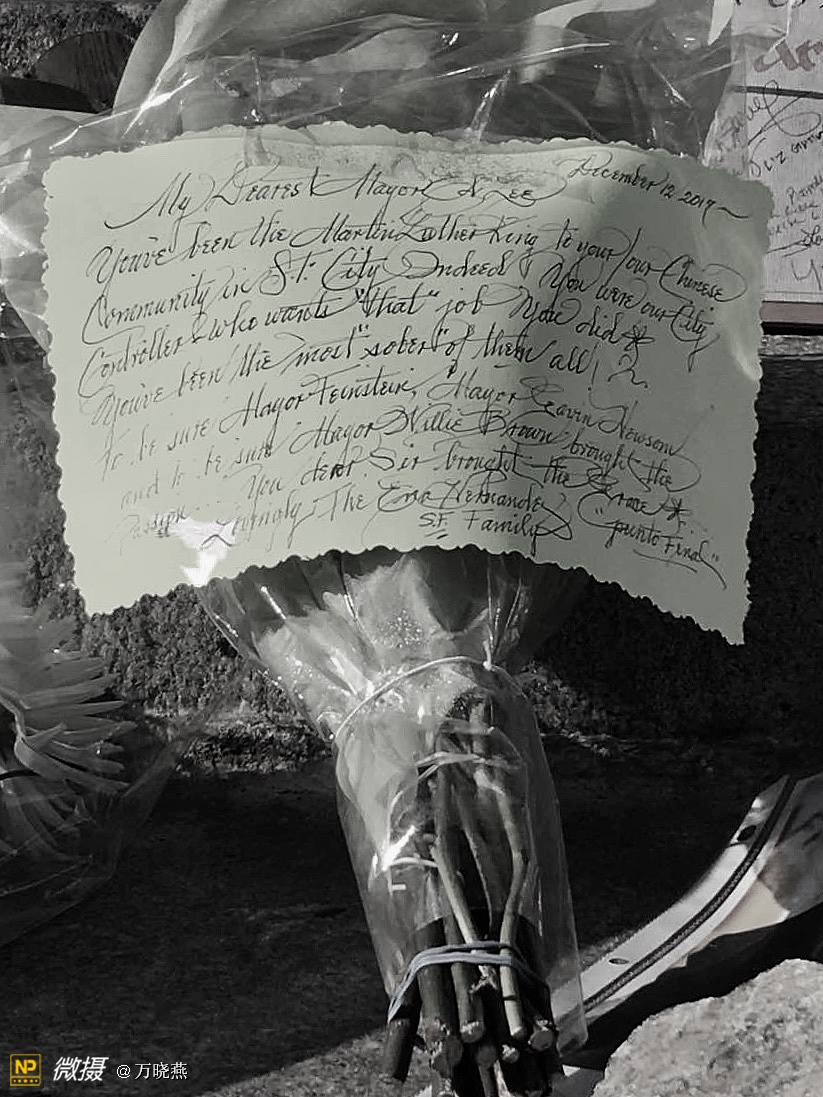 December 12, 2017~
My Dearest Mayor Ed Lee
You've been the Martin Luther King to your/our Chinese
Community in S.F. City Indeed! You were our City
Controller - who wants "that" job You did*
You've been the "most" sober" of them all!
to be sure Mayor Feinstein, Mayor Gavin Newsom
and to be sure Mayor Willie Brown brought the
Passion... You dear Sir brought the Grace*
Lovingly The Hernandez "punto Final"
S.F. Family
NP
微摄 @万晓燕